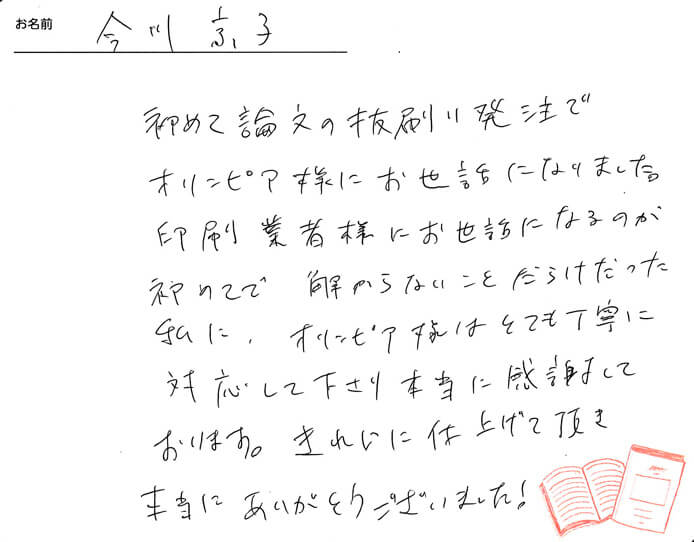 お名前 今川 京子
初めて論文の抜刷り発注で
オリンピア様にお世話になりました。
印刷業者様にお世話になるのが
初めてで 解からないことだらけだった
私に、オリンピア様はとても丁寧に
対応して下さり本当に感謝して
おります。きれいに仕上げて頂き
本当にありがとうございました!